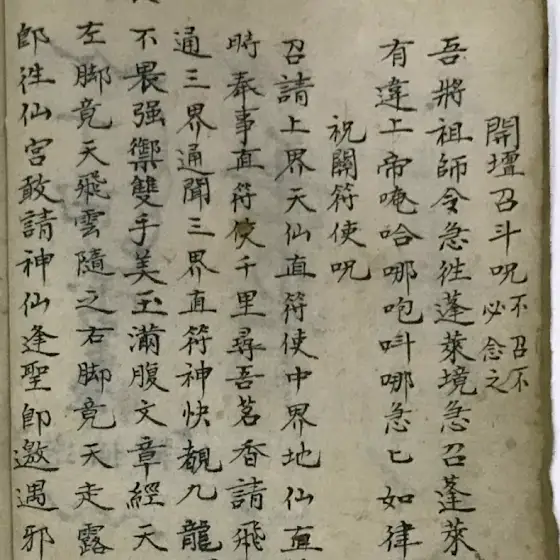 開壇召斗呪不召不必念之
吾將祖師令急徃蓬萊境急召蓬萊
有違上帝唵哈哪咆吽哪急匕如律
祝關符使呪
召請上界天仙直符使中界地仙直
時奉事直符使千里尋吾茗香請飛
通三界通聞三界直符神快覩九龍
不畏强禦雙手美玉滿腹文章經天
左脚竟天飛雲隨之右脚竟天走露
即徃仙宮敢請神仙逢聖即邀遇邪